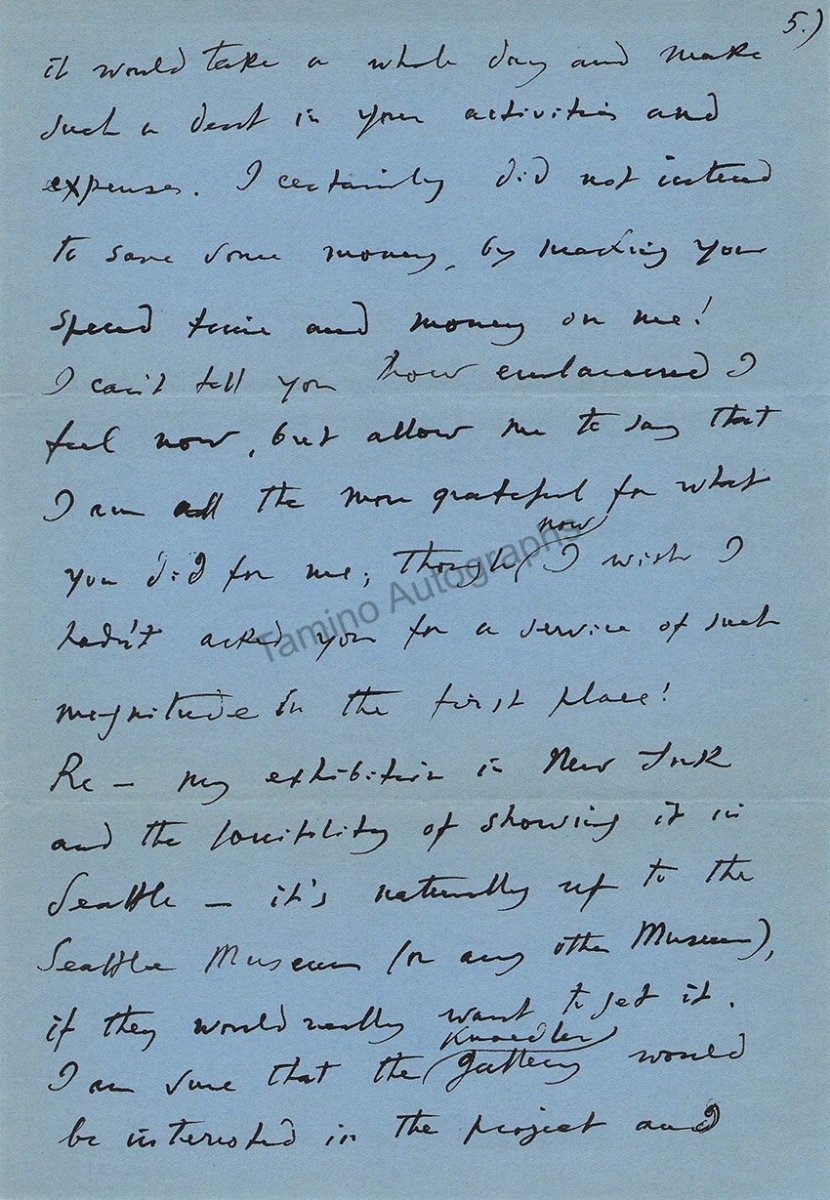 5.)
it would take a whole day and make
such a dent in your activities and
expenses. I certainly did not intend
to save some money, by making you
spend time and money on me!
I can't tell you how embarrassed I
feel now, but allow me to say that
I am all the more grateful for what
now
you did for me; though I wish I
hadn't asked you for a service of such
magnitude in the first place!
Re – my exhibition in New York
and the possibility of showing it in
Seattle – it's naturally up to the
Seattle Museum (or any other Museum),
if they would really want to get it.
Knoedler
I am sure that the Gallery would
be interested in the project and
Tamino Autographs